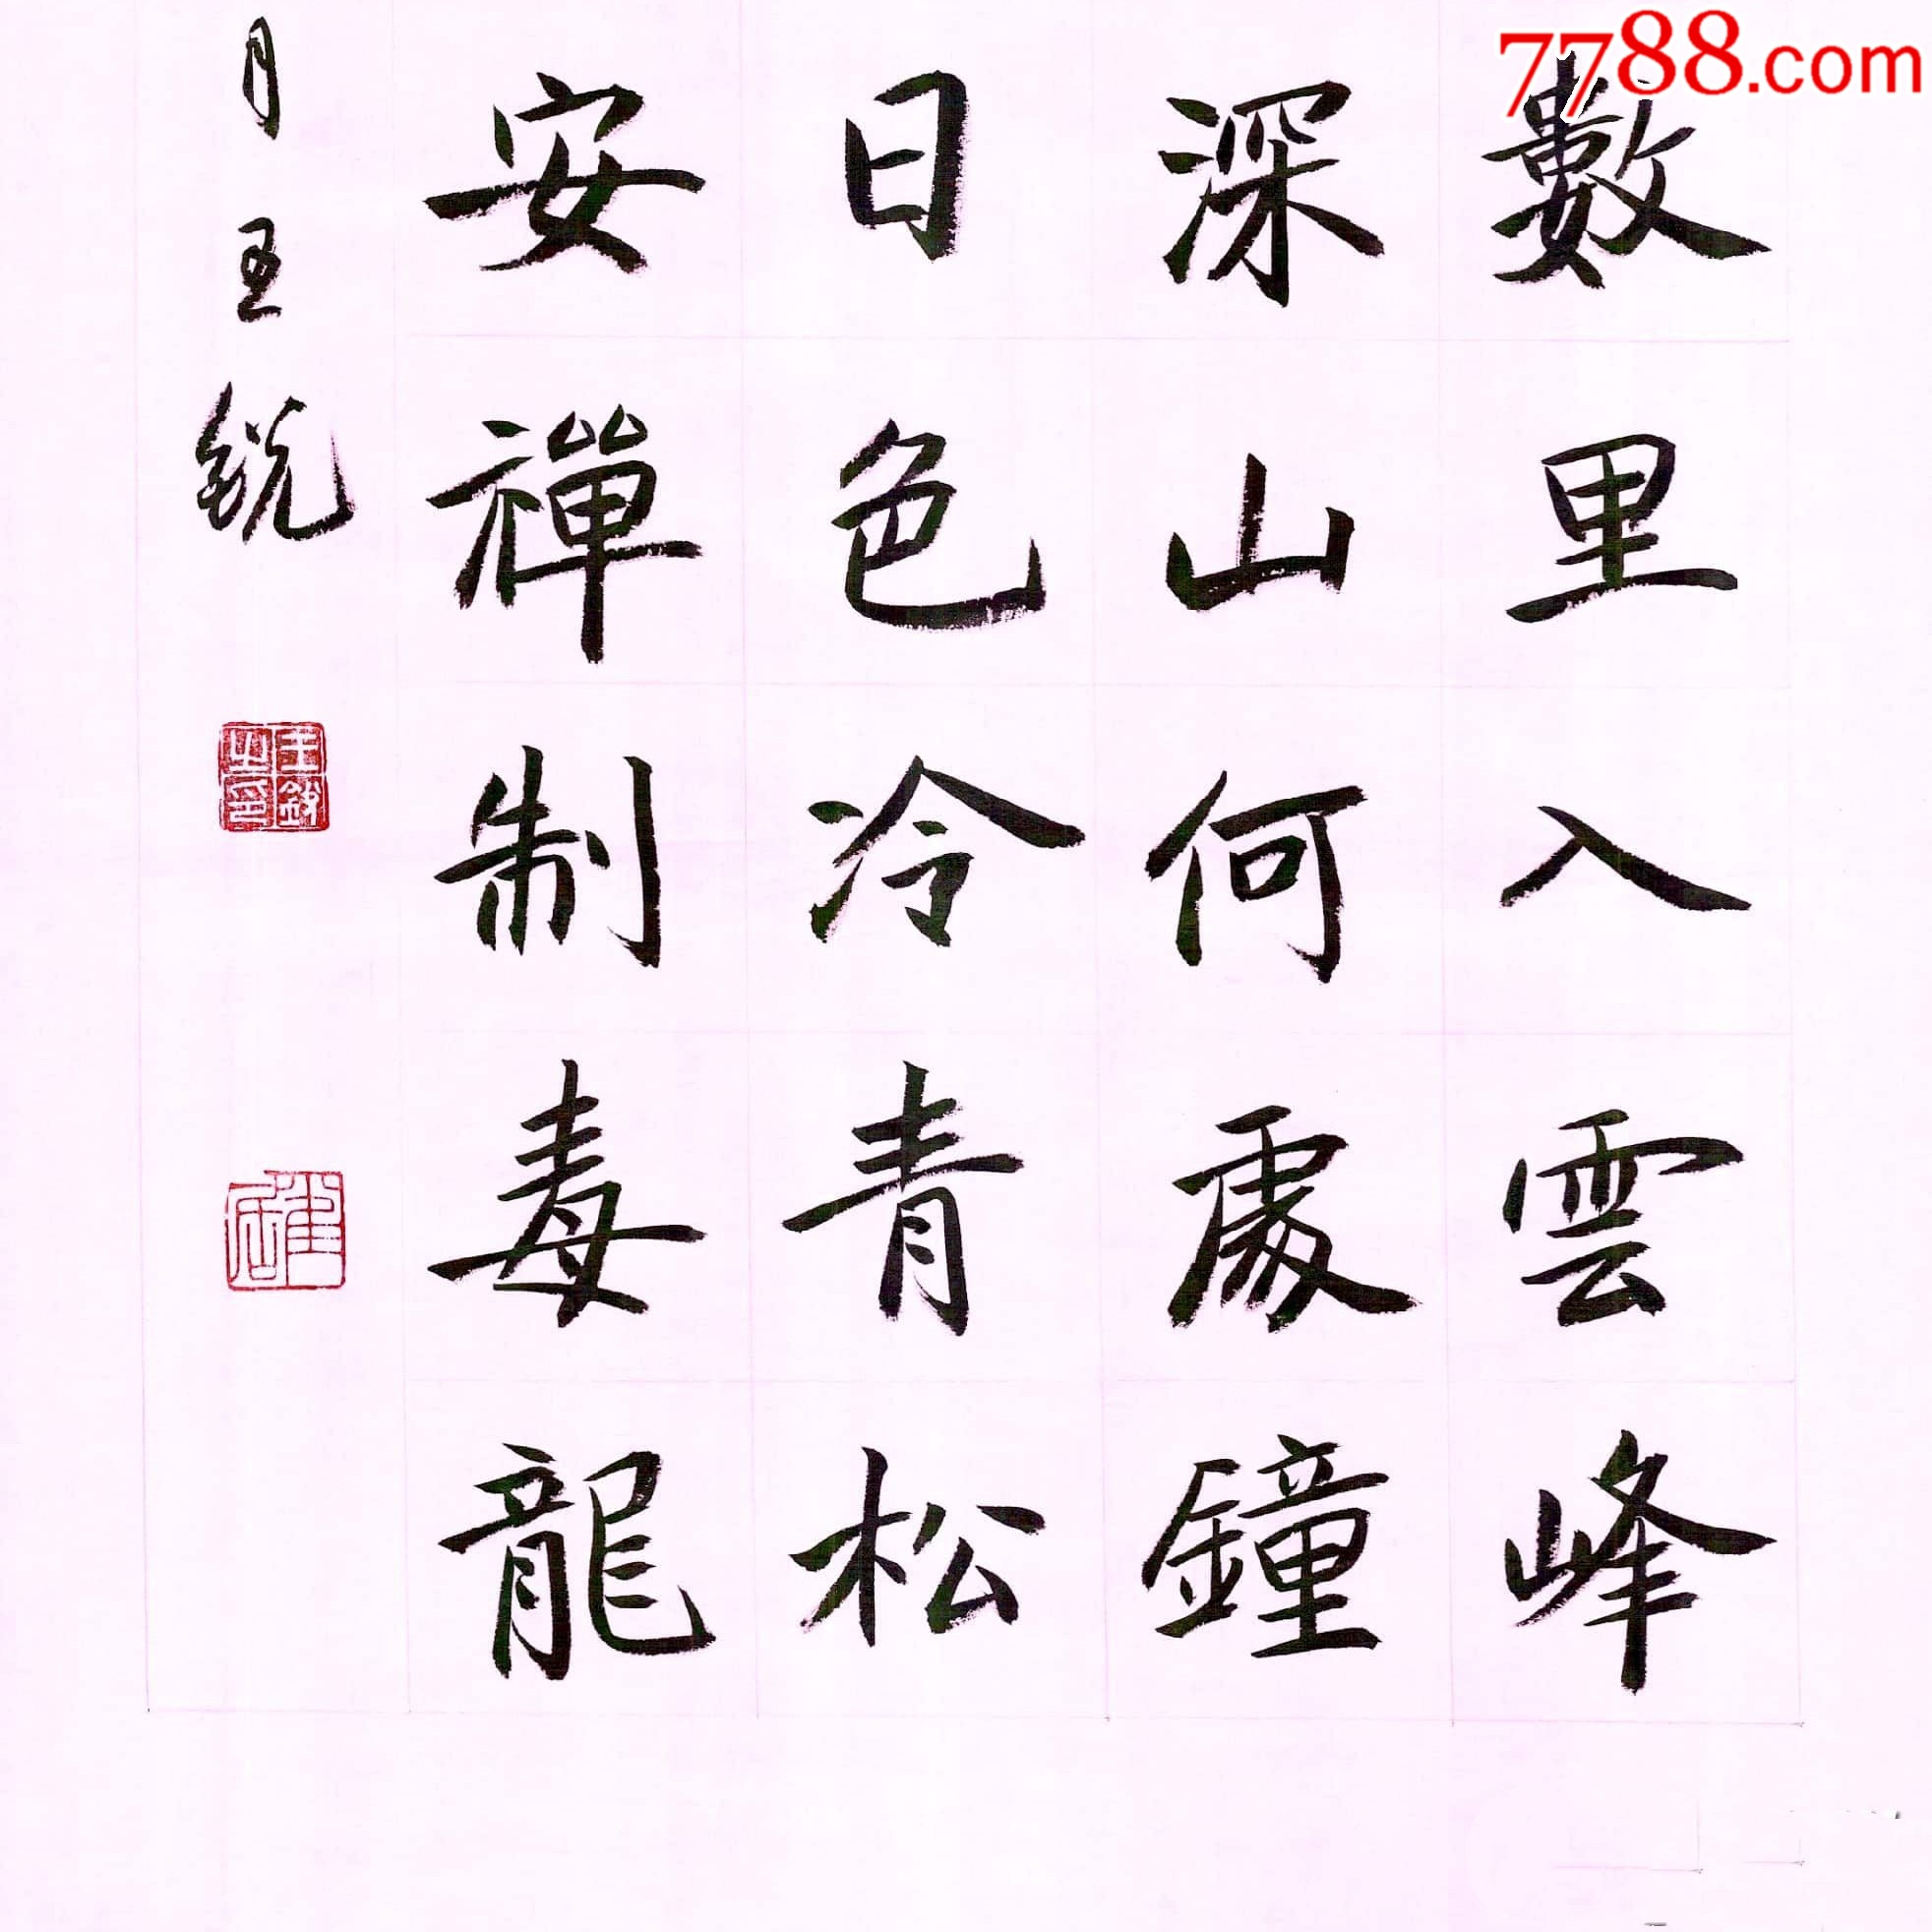 7788.com
數里入雲峰
深山何處鐘
日色冷青松
安禪制毒龍
月王銳
王銳之印